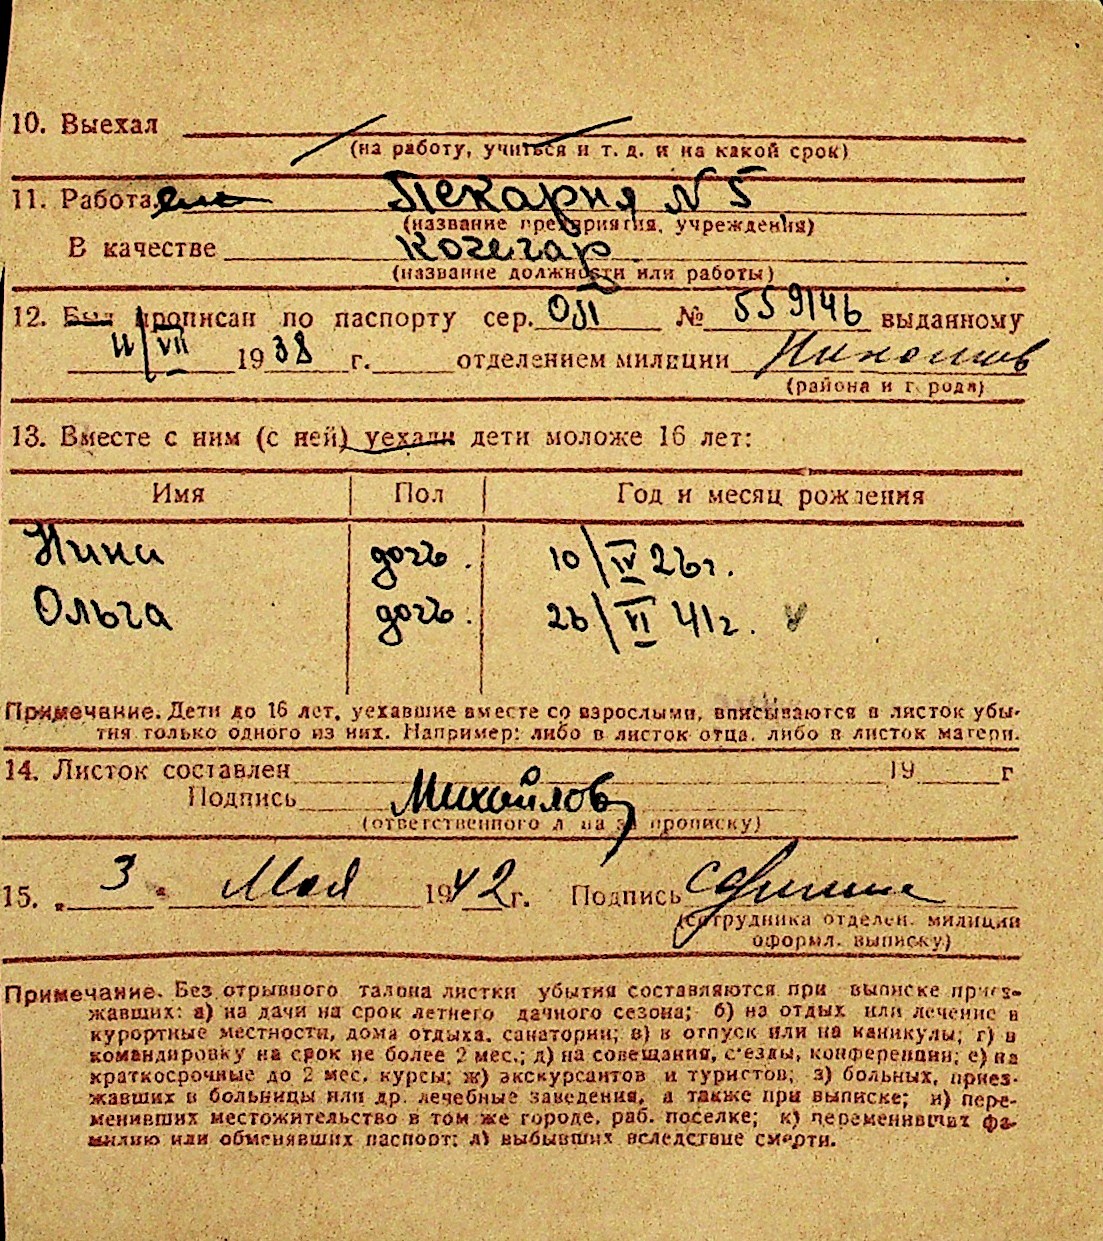 10. Выехал
(на работу, учиться и т. д. и на какой срок)
11. Работает Пекарня N 5
(название предприятия, учреждения)
В качестве Кочегар
(название должности или работы)
12. Был прописан по паспорту сер. № 559146 выданному
11/VII 1938 г. отделением милиции
(района и города)
13. Вместе с ним (с ней) уехали дети моложе 16 лет:
Имя Пол Год и месяц рождения
Нина дочь. 10/IV 26г.
Ольга дочь. 26/VI 41г.
Примечание. Дети до 16 лет, уехавшие вместе со взрослыми, вписываются в листок убы-
тия только одного из них. Например: либо в листок отца, либо в листок матери.
14. Листок составлен 19 г
Подпись Михайлов
(ответственного лица за прописку)
15. „3" Мая 1942 г. Подпись
(сотрудника отделен. милиции
оформл. выписку)
Примечание. Без отрывного талона листки убытия составляются при выписке приез-
жавших: а) на дачи на срок летнего дачного сезона; б) на отдых или лечение в
курортные местности, дома отдыха, санатории; в) в отпуск или на каникулы; г) в
командировку на срок не более 2 мес.; д) на совещания, с'езды, конференции; е) на
краткосрочные до 2 мес. курсы; ж) экскурсантов и туристов; з) больных, приез-
жавших в больницы или др. лечебные заведения, а также при выписке; и) пере-
менивших местожительство в том же городе, раб. поселке; к) переменивших фа-
милию или обменявших паспорт; л) выбывших вследствие смерти.